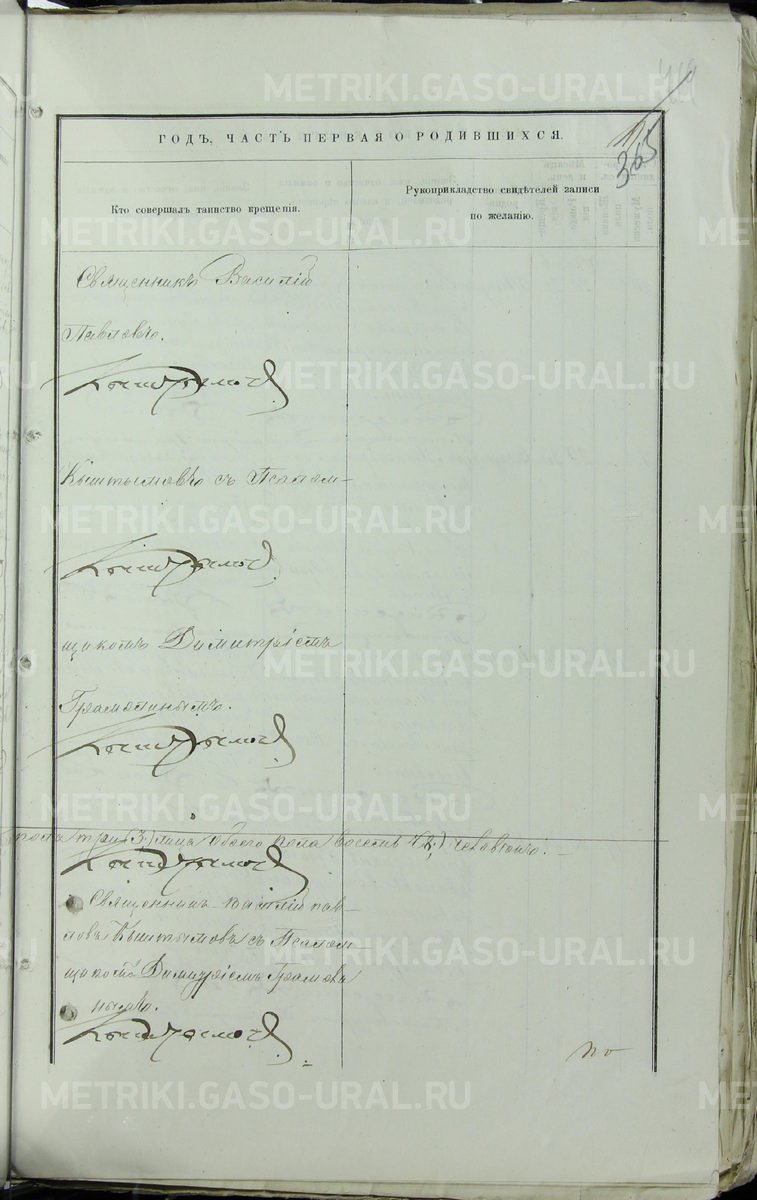 METRIKI.GASO-URAL.RU
365
ГОДЪ, ЧАСТЬ ПЕРВАЯ О РОДИВШИХСЯ.
Кто совершалъ таинство крещенія.
Рукоприкладство свидѣтелей записи
по желанію.
Священникъ Василій
Павловъ.
Кыштымовъ съ Псалом-
щикомъ Димитріемъ
Грамолинымъ.
пола три (3) лица обоего пола восемь (8) человѣкъ.
Священникъ Василій Пав-
ловъ Кыштымовъ съ Псалом-
щикомъ Димитріемъ
нымъ.
по